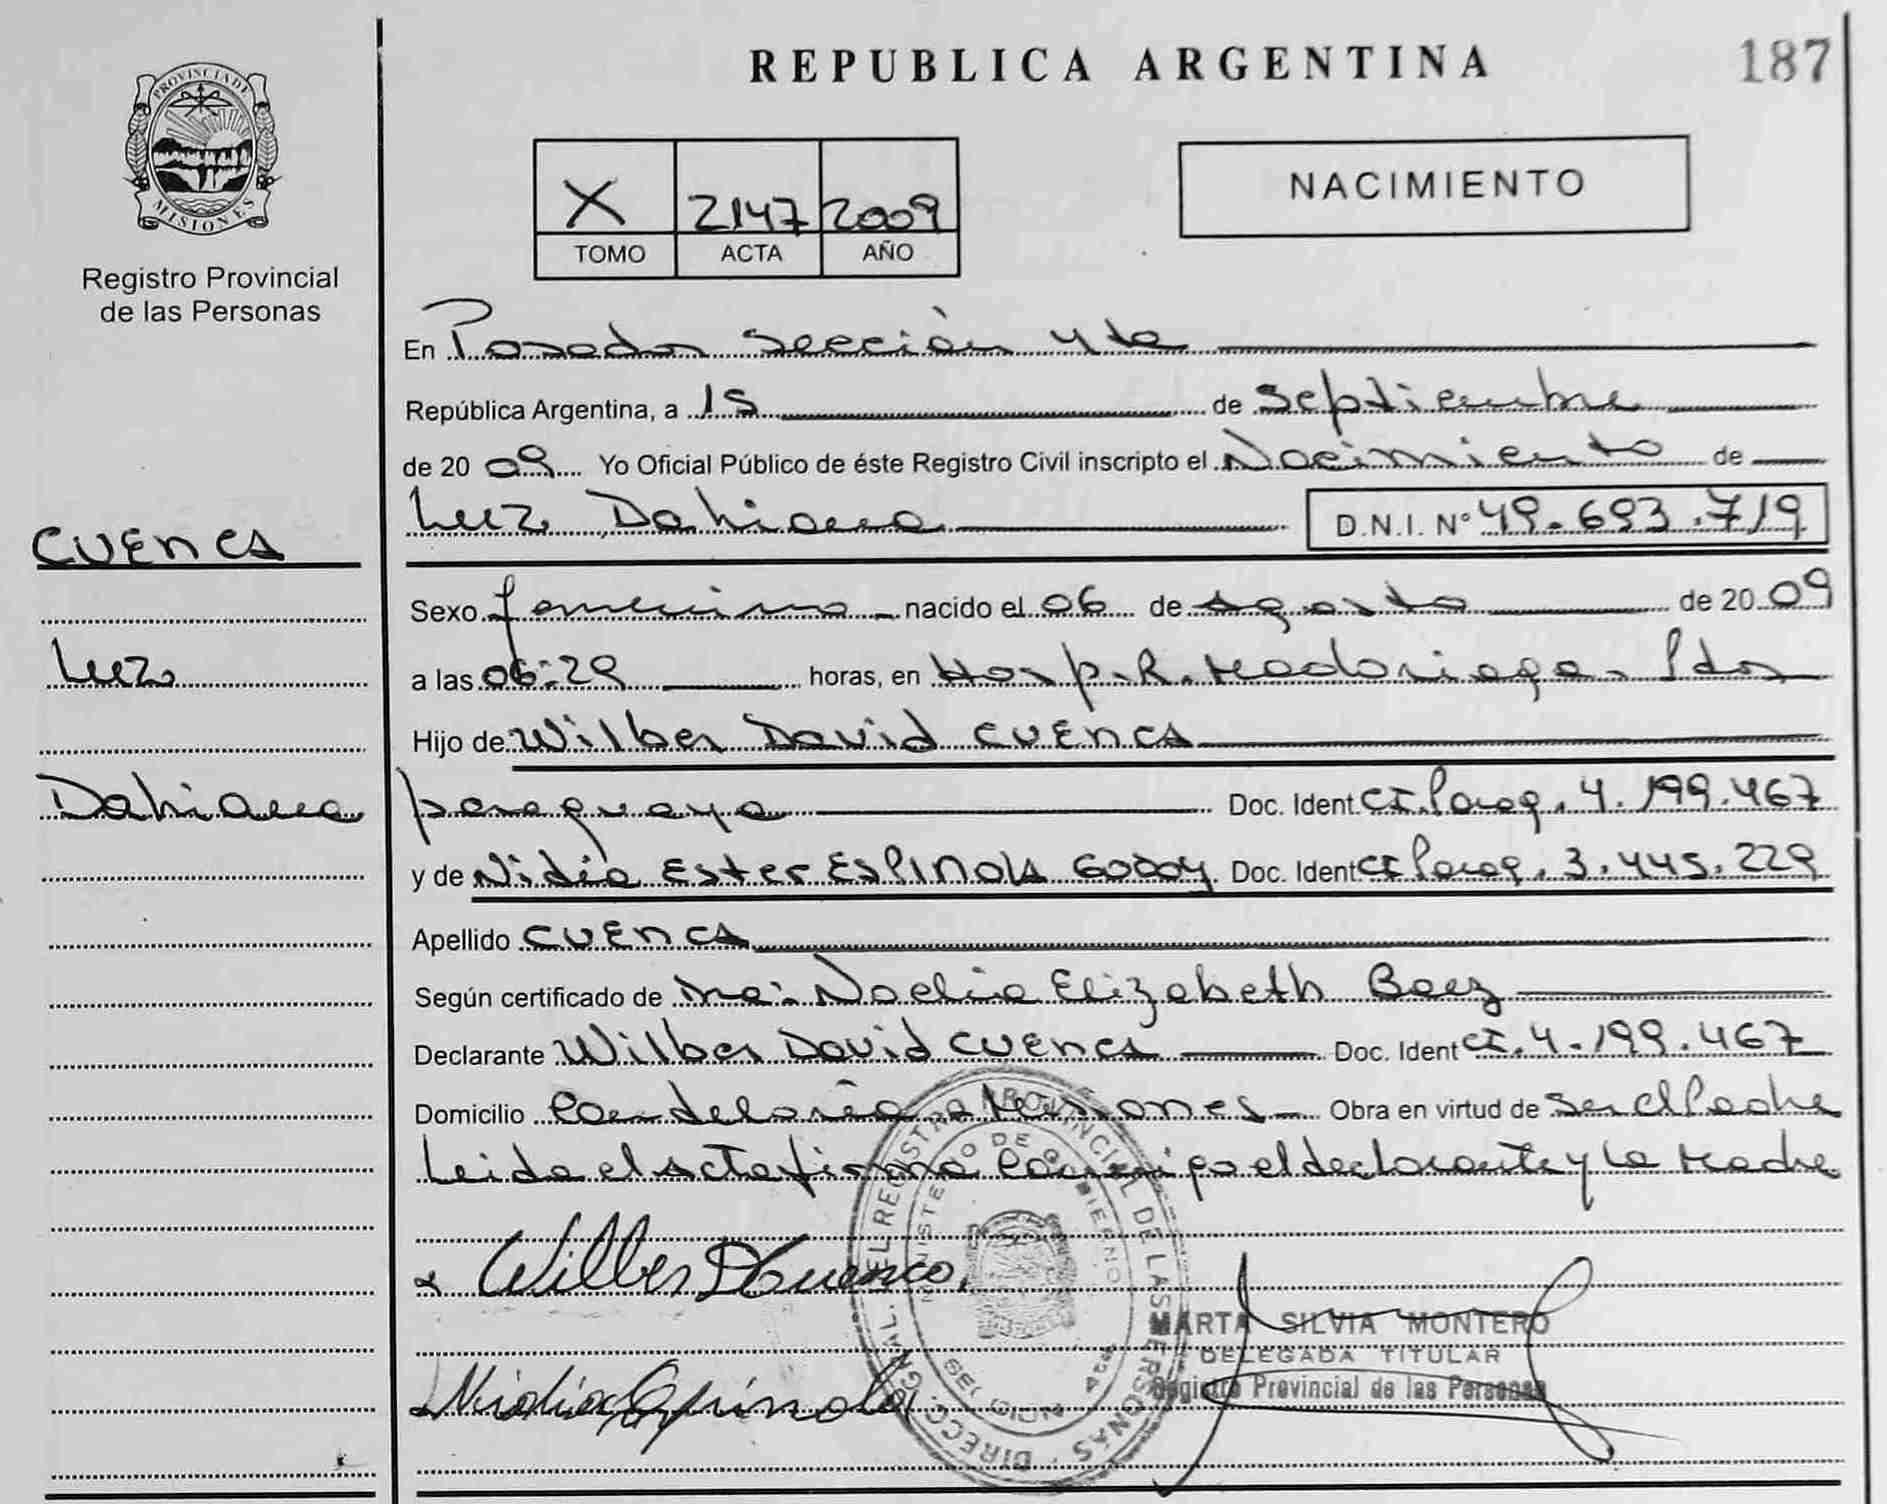 REPUBLICA ARGENTINA
187
PROVINCIA DE MISIONES
Registro Provincial
de las Personas
X 2147 2009
TOMO ACTA AÑO
NACIMIENTO
En Posadas sección 4ta
República Argentina, a 15 de septiembre
de 2009 Yo Oficial Público de éste Registro Civil inscripto el Nacimiento de
Luz Dahiana D.N.I. Nº 49.693.719
CUENCA
Luz
Dahiana
Sexo femenino nacido el 06 de Agosto de 2009
a las 06:29 horas, en Hosp. R. Madariaga - Pdas
Hijo de Wilber David CUENCA
paraguayo Doc. Ident. CI. Parag. 4.199.467
y de Nidia Ester ESPINOLA GODOY Doc. Ident CI Parag. 3.445.229
Apellido CUENCA
Según certificado de Noelia Elizabeth Baez
Declarante Wilber David CUENCA Doc. Ident CI. 4.199.467
Domicilio Candelaria Misiones Obra en virtud de ser el Padre
Leida el acta firma conmigo el declarante y la Madre
Wilber D Cuenca
MARTA SILVIA MONTERO
DELEGADA TITULAR
Registro Provincial de las Personas
Nidia Espinola
DIRECC. GRAL. DEL REGISTRO PROVINCIAL DE LAS PERSONAS
MINISTERIO DE GOBIERNO
SECCION 4ta